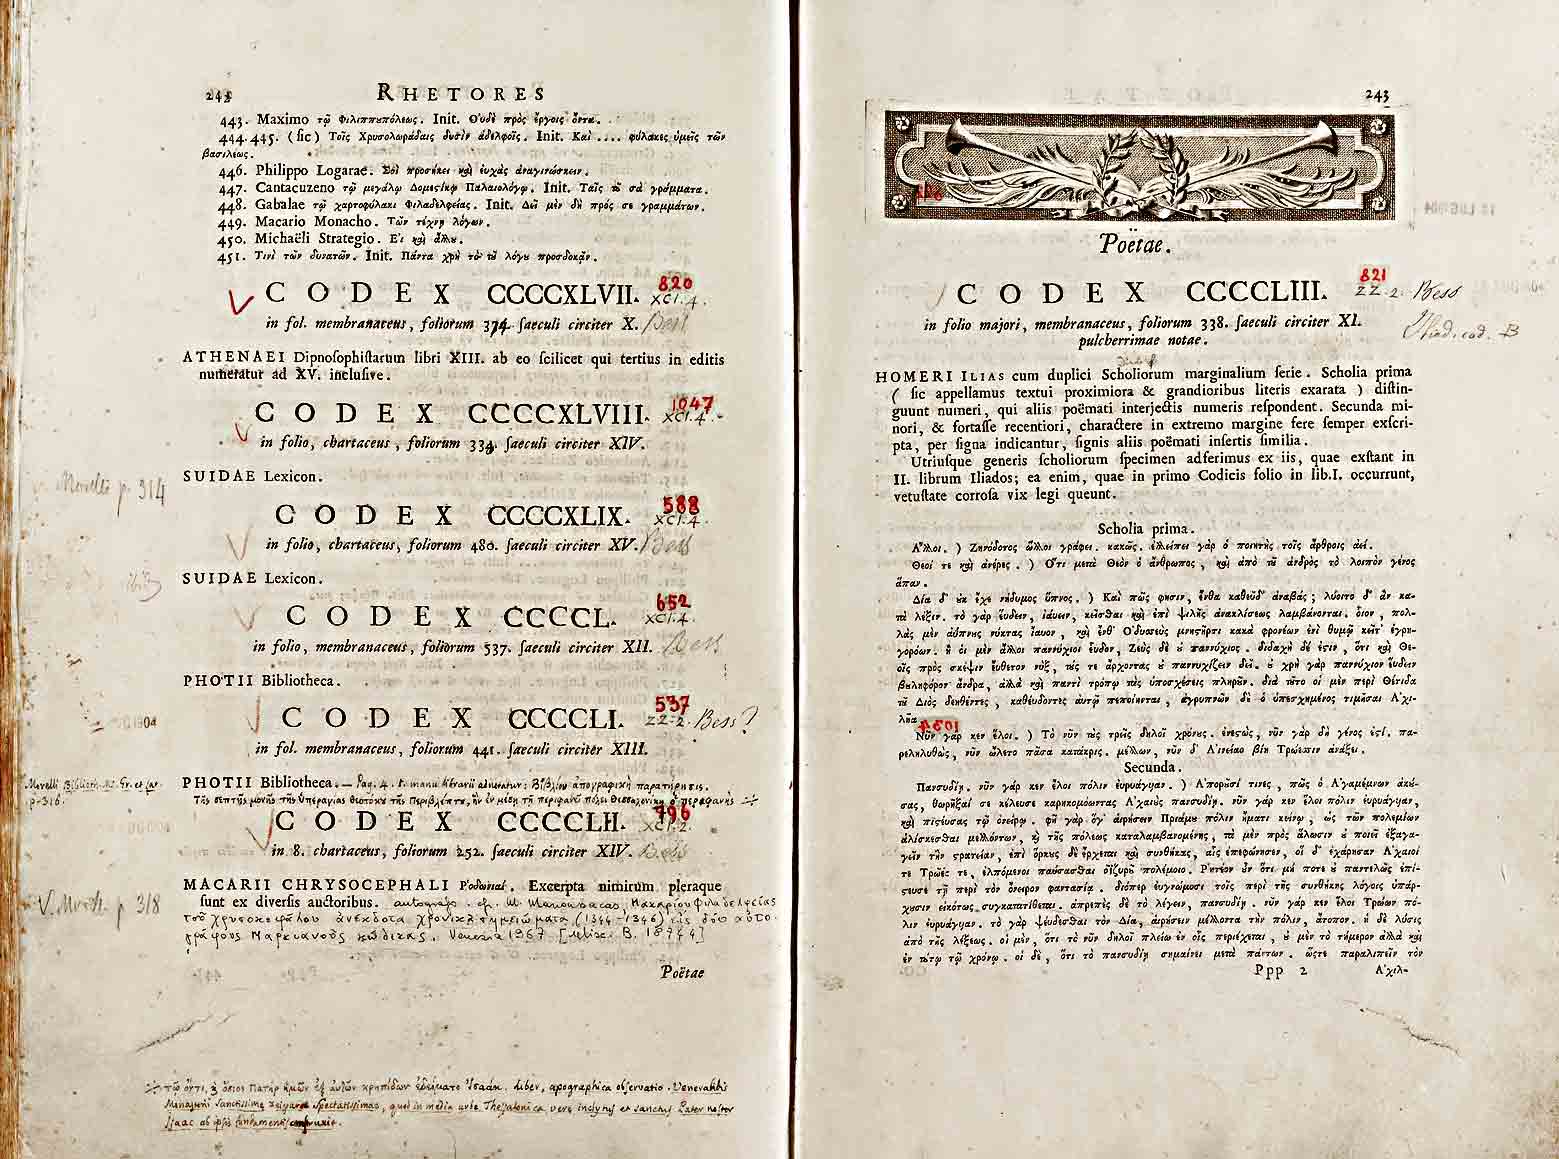 242
RHETORES
443. Maximo τῷ Φιλιππυπόλεως. Init. Οὐδὲ πρὸς ἔργοις ὄντα.
444.445. (ſic) Τοῖς Χρυσολωράδαις δυσὶν ἀδελφοῖς. Init. Καὶ .... φύλακες ὑμεῖς τῶν
βασιλέως.
446. Philippo Logarae. Σοὶ προσήκει καὶ εὐχὰς ἀναγινώσκειν.
447. Cantacuzeno τῷ μεγάλῳ Δομεςίκῳ Παλαιολόγῳ. Init. Ταῖς τὰ σὰ γράμματα.
448. Gabalae τῷ χαρτοφύλακι Φιλαδελφείας. Init. Δεῖ μὲν δὴ πρός σε γραμμάτων.
449. Macario Monacho. Τῶν τέχνῃ λόγων.
450. Michaëli Strategio. Εἰ καὶ ἄλλυ.
451. Τινὶ τῶν δυνατῶν. Init. Πάντα χρὴ τὸ τῦ λόγυ προσδοκᾷν.
CODEX CCCCXLVII. 820 XCI.4.
in fol. membranaceus, foliorum 374. ſaeculi circiter X. Bess
ATHENAEI Dipnoſophiſtarum libri XIII. ab eo ſcilicet qui tertius in editis
numeratur ad XV. incluſive.
CODEX CCCCXLVIII. 1047 XCI.4.
in folio, chartaceus, foliorum 334. ſaeculi circiter XIV.
SUIDAE Lexicon.
Morelli p. 314
CODEX CCCCXLIX. 588 XCI.4.
in folio, chartaceus, foliorum 480. ſaeculi circiter XV. Bess
SUIDAE Lexicon.
ibid
CODEX CCCCL. 652 XCI.4.
in folio, membranaceus, foliorum 537. ſaeculi circiter XII. Bess
PHOTII Bibliotheca.
CODEX CCCCLI. 537 ZZ-2. Bess?
in fol. membranaceus, foliorum 441. ſaeculi circiter XIII.
Morelli Biblioth. Ms. Gr. et Lat.
p. 316.
PHOTII Bibliotheca. — Pag. 4. manu librarii Βιβλίον ἀπογραφικὴ παρατήρησις.
Τῆς σεπτῆς μονῆς τῆς Ὑπεραγίας Θεοτόκου τῆς Περιβλέπτου, ἣν ἐν μέσῃ τῇ περιφανῇ πόλει Θεσσαλονίκῃ ὁ περιφανὴς
CODEX CCCCLII. 796 XCI.2.
in 8. chartaceus, foliorum 252. ſaeculi circiter XIV. Bess
MACARII CHRYSOCEPHALI Ροδωνιαί. Excerpta nimirum pleraque
ſunt ex diverſis auctoribus. autografo. cf. M. Manousacas, Μακαρίου Φιλαδελφείας
τοῦ Χρυσοκεφάλου ἀνέκδοτα χρονικὰ σημειώματα (1344-1346) εἰς δύο αὐτο-
γράφους Μαρκιανοὺς κώδικας. Venezia 1967 [Misc. B. 18744]
V. Morell. p 318
Poëtae
τῷ ὄντι, καὶ ὅσιος πατὴρ ἡμῶν ἐξ αὐτῶν κρηπίδων ἐδείματο Ἰσαάκ. Liber, apographica observatio. Venerabilis
Monasterii Sanctissimae Deiparae Spectatissimae, quod in media urbe Thessalonica vere inclytus et sanctus Pater noster
Isaac ab ipsis fundamentis construxit.
243
Poëtae.
CODEX CCCCLIII. 821 ZZ-2. Bess
in folio majori, membranaceus, foliorum 338. ſaeculi circiter XI.
pulcherrimae notae.
Iliad. cod. B
HOMERI ILIAS cum duplici Scholiorum marginalium ſerie. Scholia prima
( ſic appellamus textui proximiora & grandioribus literis exarata ) diſtin-
guunt numeri, qui aliis poëmati interjectis numeris reſpondent. Secunda mi-
nori, & fortaſſe recentiori, charactere in extremo margine fere ſemper exſcri-
pta, per ſigna indicantur, ſignis aliis poëmati inſertis ſimilia.
Utriuſque generis ſcholiorum ſpecimen adferimus ex iis, quae exſtant in
II. librum Iliados; ea enim, quae in primo Codicis folio in lib.I. occurrunt,
vetuſtate corroſa vix legi queunt.
Scholia prima.
Ἄλλοι. ) Ζηνόδοτος ὦλλοι γράφει. κακῶς. ἐλλείπει γὰρ ὁ ποιητὴς τοῖς ἄρθροις ἀεί.
Θεοί τε καὶ ἀνέρες. ) Ὅτι μετὰ Θεὸν ὁ ἄνθρωπος, καὶ ἀπὸ τῦ ἀνδρὸς τὸ λοιπὸν γένος
ἅπαν.
Δία δ' ὐκ ἔχε νήδυμος ὕπνος. ) Καὶ πῶς φησιν, ἔνθα καθεῦδ' ἀναβάς; λύοιτο δ' ἂν κα-
τὰ λέξιν. τὸ γὰρ εὕδειν, ἰαύειν, κεῖσθαι καὶ ἐπὶ ψιλῆς ἀνακλίσεως λαμβάνονται. οἷον, πολ-
λὰς μὲν ἀΰπνυς νύκτας ἴαυον, καὶ ἔνθ' Ὀδυσεὺς μνηςῆρσι κακὰ φρονέων ἐνὶ θυμῷ κεῖτ' ἐγρη-
γορόων. ἢ οἱ μὲν ἄλλοι παννύχιοι εὗδον, Ζεὺς δὲ ὐ παννύχιος. διδαχὴ δέ ἐςιν, ὅτι καὶ Θε-
οῖς πρὸς σκέψιν εὔθετον νύξ, τύς τε ἄρχοντας ὐ παννυχίζειν δεῖ. ὐ χρὴ γὰρ παννύχιον εὕδειν
βυληφόρον ἄνδρα, ἀλλὰ καὶ παντὶ τρόπῳ τὰς ὑποσχέσεις πληρῦν. διὰ τῦτο οἱ μὲν περὶ Θέτιδα
τῦ Διὸς δεηθέντες, καθεύδοντες αὐτῷ πεποίηνται, ἀγρυπνῶν δὲ ὁ ὑπεσχημένος τιμῆσαι Ἀχι-
λῆα.
Νῦν γάρ κεν ἕλοι. ) Τὸ νῦν τὺς τρεῖς δηλοῖ χρόνυς. ἐνεςὼς, νῦν γὰρ δὴ γένος ἐςί. πα-
ρεληλυθὼς, νῦν ὤλετο πᾶσα κατάκρις. μέλλων, νῦν δ' Αἰνείαο βίη Τρώεσσιν ἀνάξει.
Secunda.
Πανσυδίῃ. νῦν γάρ κεν ἕλοι πόλιν εὐρυάγυιαν. ) Ἀποροῦσί τινες, πῶς ὁ Ἀγαμέμνων ἀκύ-
σας, θωρῆξαί σε κέλευσε καρηκομόωντας Ἀχαιὺς πανσυδίῃ. νῦν γάρ κεν ἕλοι πόλιν εὐρυάγυιαν,
καὶ πιςεύσας τῷ ὀνείρῳ. φῆ γὰρ ὅγ' αἱρήσειν Πριάμυ πόλιν ἤματι κείνῳ, ὡς τῶν πολεμίων
ἁλίσκεσθαι μελλόντων, καὶ τῆς πόλεως καταλαμβανομένης, τὰ μὲν πρὸς ἅλωσιν ὐ ποιεῖ ἐξαγα-
γεῖν τὴν ςρατείαν, ἐπὶ ὅρκυς δὲ ἔρχεται καὶ συνθήκας, αἷς ἐπεφώνησεν, οἱ δ' ἐχάρησαν Ἀχαιοί
τε Τρῶές τε, ἐλπόμενοι παύσασθαι ὀϊζυρῦ πολέμοιο. Ῥητέον ὖν ὅτι μή ποτε ὐ παντελῶς ἐπί-
ςευσε τῇ περὶ τὸν ὄνειρον φαντασίᾳ. διόπερ εὐγνώμοσι τοῖς περὶ τῆς συνθήκης λόγοις ὑπάρ-
χυσιν εἰκότως συγκατατίθεται. ἀπρεπὲς δὲ τὸ λέγειν, πανσυδίῃ. νῦν γάρ κεν ἕλοι Τρώων πό-
λιν εὐρυάγυιαν. τὸ γὰρ ψεύδεσθαι τὸν Δία, αἱρήσειν μέλλοντα τὴν πόλιν, ἄτοπον. ἡ δὲ λύσις
ἀπὸ τῆς λέξεως. οἱ μὲν, ὅτι τὸ νῦν δηλοῖ πλείω ἐν οἷς περιέχεται, ὐ μὲν τὸ τήμερον ἀλλὰ καὶ
ἐν τύτῳ τῷ χρόνῳ. οἱ δὲ, ὅτι τὸ πανσυδίῃ σημαίνει μετὰ πάντων. ὥςτε παραλιπεῖν τὸν
Ppp 2
Ἀχιλ-